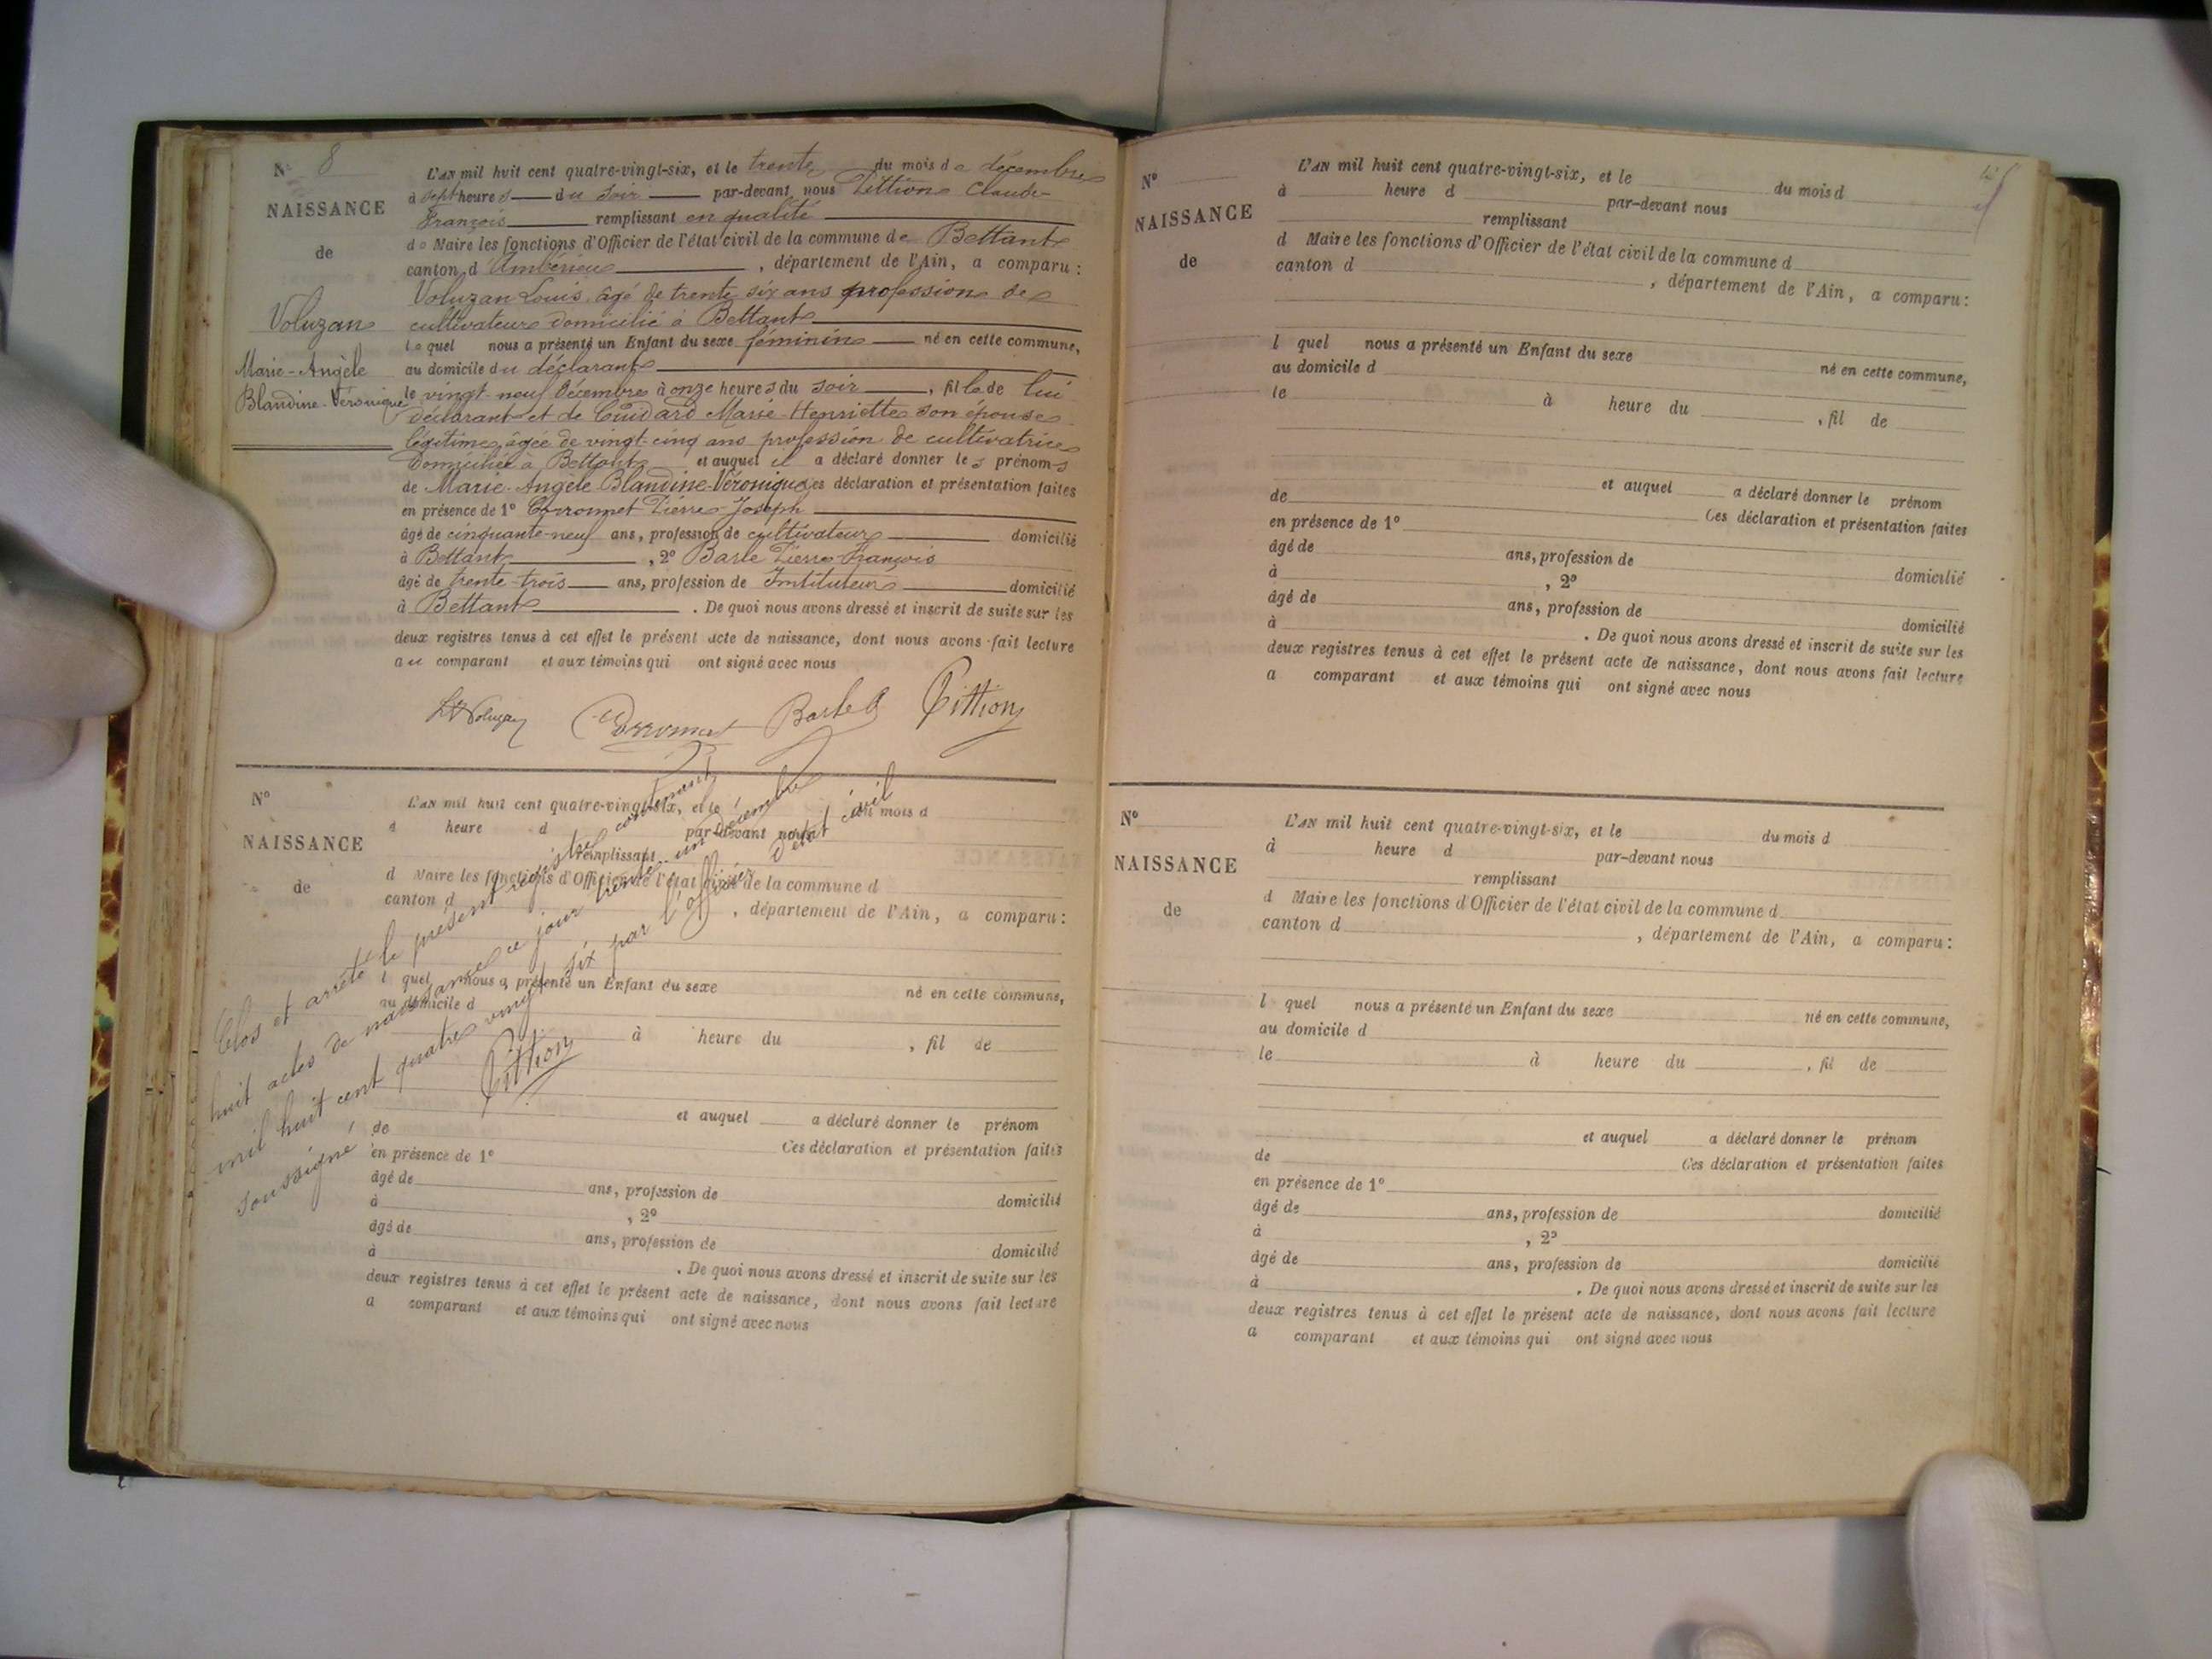 N° 8
NAISSANCE
de
Voluzan
Marie-Angèle
Blandine-Véronique
L'AN mil huit cent quatre-vingt-six, et le trente du mois de décembre
à sept heures du soir par-devant nous Pittion Claude-
François remplissant en qualité
de Maire les fonctions d'Officier de l'état civil de la commune de Bettant
canton d'Ambérieu, département de l'Ain, a comparu:
Voluzan Louis, âgé de trente six ans profession de
cultivateur domicilié à Bettant
lequel nous a présenté un Enfant du sexe féminin né en cette commune,
au domicile du déclarant
le vingt-neuf Décembre à onze heures du soir, fille de lui
déclarant et de Marie-Henriette son épouse
légitime, âgée de vingt-cinq ans profession de cultivatrice
domiciliée à Bettant et auquel il a déclaré donner les prénoms
de Marie-Angèle Blandine-Véronique Ces déclaration et présentation faites
en présence de 1° Pierre-Joseph
âgé de cinquante-neuf ans, profession de cultivateur domicilié
à Bettant, 2° Barle Pierre-François
âgé de trente-trois ans, profession de Instituteur domicilié
à Bettant. De quoi nous avons dressé et inscrit de suite sur les
deux registres tenus à cet effet le présent acte de naissance, dont nous avons fait lecture
au comparant et aux témoins qui ont signé avec nous
Voluzan Barle Pittion
N°
NAISSANCE
de
L'AN mil huit cent quatre-vingt-six, et le du mois d
à heure d par-devant nous
remplissant
d Maire les fonctions d'Officier de l'état civil de la commune d
canton d , département de l'Ain, a comparu:
l quel nous a présenté un Enfant du sexe né en cette commune,
au domicile d
à heure du , fil de
et auquel a déclaré donner le prénom
de Ces déclaration et présentation faites
en présence de 1°
âgé de ans, profession de domicilié
à , 2°
âgé de ans, profession de domicilié
à . De quoi nous avons dressé et inscrit de suite sur les
deux registres tenus à cet effet le présent acte de naissance, dont nous avons fait lecture
a comparant et aux témoins qui ont signé avec nous
Clos et arrêté le présent registre contenant
huit actes de naissance ce jour trente-un Décembre
mil huit cent quatre vingt six par l'officier d'état civil
soussigné
Pittion
N°
NAISSANCE
de
L'AN mil huit cent quatre-vingt-six, et le du mois d
à heure d par-devant nous
remplissant
d Maire les fonctions d'Officier de l'état civil de la commune d
canton d , département de l'Ain, a comparu:
l quel nous a présenté un Enfant du sexe né en cette commune,
au domicile d
le à heure du , fil de
et auquel a déclaré donner le prénom
de Ces déclaration et présentation faites
en présence de 1°
âgé de ans, profession de domicilié
à , 2°
âgé de ans, profession de domicilié
à . De quoi nous avons dressé et inscrit de suite sur les
deux registres tenus à cet effet le présent acte de naissance, dont nous avons fait lecture
a comparant et aux témoins qui ont signé avec nous
N°
NAISSANCE
de
L'AN mil huit cent quatre-vingt-six, et le du mois d
à heure d par-devant nous
remplissant
d Maire les fonctions d'Officier de l'état civil de la commune d
canton d , département de l'Ain, a comparu:
l quel nous a présenté un Enfant du sexe né en cette commune,
au domicile d
le à heure du , fil de
et auquel a déclaré donner le prénom
de Ces déclaration et présentation faites
en présence de 1°
âgé de ans, profession de domicilié
à , 2°
âgé de ans, profession de domicilié
à . De quoi nous avons dressé et inscrit de suite sur les
deux registres tenus à cet effet le présent acte de naissance, dont nous avons fait lecture
a comparant et aux témoins qui ont signé avec nous